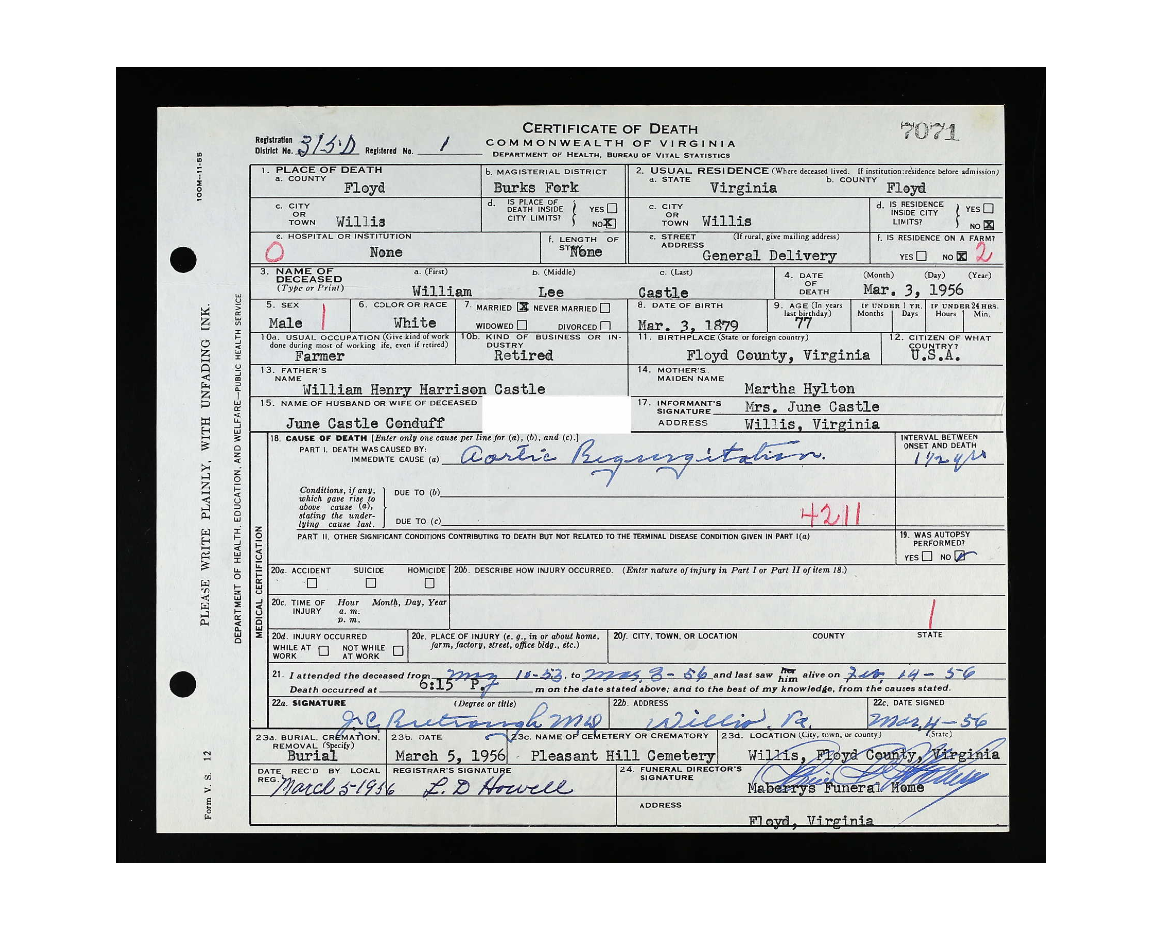 CERTIFICATE OF DEATH
7071
Registration District No. 315-D Registered No. 1
COMMONWEALTH OF VIRGINIA
DEPARTMENT OF HEALTH, BUREAU OF VITAL STATISTICS
100M-11-55
1. PLACE OF DEATH
a. COUNTY
Floyd
b. MAGISTERIAL DISTRICT
Burks Fork
2. USUAL RESIDENCE (Where deceased lived. If institution: residence before admission)
a. STATE
Virginia
b. COUNTY
Floyd
c. CITY OR TOWN Willis
d. IS PLACE OF DEATH INSIDE CITY LIMITS? YES NO X
c. CITY OR TOWN Willis
d. IS RESIDENCE INSIDE CITY LIMITS? YES NO X
e. HOSPITAL OR INSTITUTION
0 None
f. LENGTH OF
None
e. STREET ADDRESS (If rural, give mailing address)
General Delivery
f. IS RESIDENCE ON A FARM?
YES NO X 2
3. NAME OF DECEASED (Type or Print)
a. (First) b. (Middle) c. (Last)
William Lee Castle
4. DATE OF DEATH (Month) (Day) (Year)
Mar. 3, 1956
5. SEX
Male 1
6. COLOR OR RACE
White
7. MARRIED X NEVER MARRIED
WIDOWED DIVORCED
8. DATE OF BIRTH
Mar. 3, 1879
9. AGE (In years last birthday)
77
IF UNDER 1 YR. Months Days
IF UNDER 24 HRS. Hours Min.
10a. USUAL OCCUPATION (Give kind of work done during most of working life, even if retired)
Farmer
10b. KIND OF BUSINESS OR INDUSTRY
Retired
11. BIRTHPLACE (State or foreign country)
Floyd County, Virginia
12. CITIZEN OF WHAT COUNTRY?
U.S.A.
13. FATHER'S NAME
William Henry Harrison Castle
14. MOTHER'S MAIDEN NAME
Martha Hylton
15. NAME OF HUSBAND OR WIFE OF DECEASED
June Castle Conduff
17. INFORMANT'S SIGNATURE Mrs. June Castle
ADDRESS Willis, Virginia
18. CAUSE OF DEATH [Enter only one cause per line for (a), (b), and (c).]
PART I. DEATH WAS CAUSED BY:
IMMEDIATE CAUSE (a) Aortic Regurgitation.
INTERVAL BETWEEN ONSET AND DEATH
Conditions, if any, which gave rise to above cause (a), stating the underlying cause last.
DUE TO (b)
DUE TO (c)
4211
PART II. OTHER SIGNIFICANT CONDITIONS CONTRIBUTING TO DEATH BUT NOT RELATED TO THE TERMINAL DISEASE CONDITION GIVEN IN PART I(a)
19. WAS AUTOPSY PERFORMED?
YES NO
20a. ACCIDENT SUICIDE HOMICIDE
20b. DESCRIBE HOW INJURY OCCURRED. (Enter nature of injury in Part I or Part II of item 18.)
20c. TIME OF INJURY Hour Month, Day, Year
a. m.
p. m.
1
20d. INJURY OCCURRED
WHILE AT WORK NOT WHILE AT WORK
20e. PLACE OF INJURY (e. g., in or about home, farm, factory, street, office bldg., etc.)
20f. CITY, TOWN, OR LOCATION COUNTY STATE
21. I attended the deceased from to and last saw her him alive on Feb. 14-56
Death occurred at 6:15 P. m on the date stated above; and to the best of my knowledge, from the causes stated.
22a. SIGNATURE (Degree or title)
MD
22b. ADDRESS
Willis, Va.
22c. DATE SIGNED
Mar, 4-56
23a. BURIAL, CREMATION, REMOVAL (Specify)
Burial
23b. DATE
March 5, 1956
23c. NAME OF CEMETERY OR CREMATORY
Pleasant Hill Cemetery
23d. LOCATION (City, town, or county) (State)
Willis, Floyd County, Virginia
DATE REC'D BY LOCAL REG.
March 5-1956
REGISTRAR'S SIGNATURE
L. D Howell
24. FUNERAL DIRECTOR'S SIGNATURE
Maberrys Funeral Home
ADDRESS
Floyd, Virginia
PLEASE WRITE PLAINLY, WITH UNFADING INK.
DEPARTMENT OF HEALTH, EDUCATION, AND WELFARE—PUBLIC HEALTH SERVICE
MEDICAL CERTIFICATION
Form V. S. 12